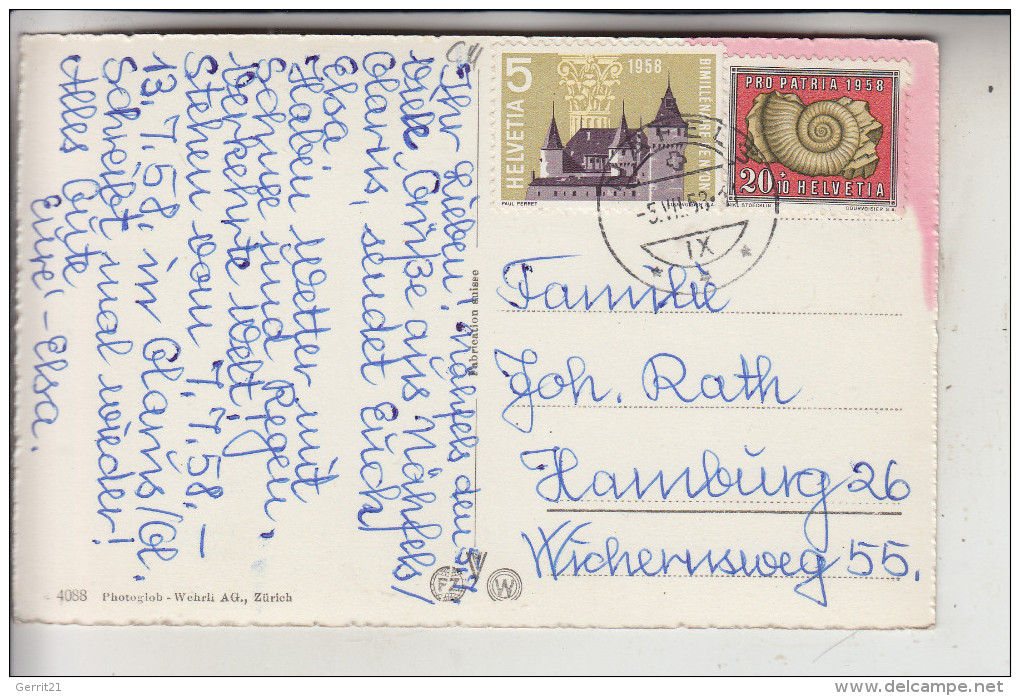 Ihr Lieben! Näfels den 5.7.
viele Grüße aus Nähfels/
Glarus, sendet Euch
Elsa.
Haben Wetter mit
Schnee und Regen.
Verkehrte Welt!
Stehen vom 7.7.58,–
13.7.58. in Glarus/Gl.
Schreibt mal wieder!
Alles Gute
Eure – Elsa.
HELVETIA 5
1958
BIMILLENAIRE DE NYON
PAUL PERRET
PRO PATRIA 1958
20+10 HELVETIA
NIKL STOECKLIN
COURVOISIER S.A.
-5.VII.58
IX
Familie
Joh. Rath
Hamburg 26
Wichernsweg 55.
Fabrication suisse
4088 Photoglob - Wehrli AG., Zürich
PZ
W
Gerrit21
delcampe.net